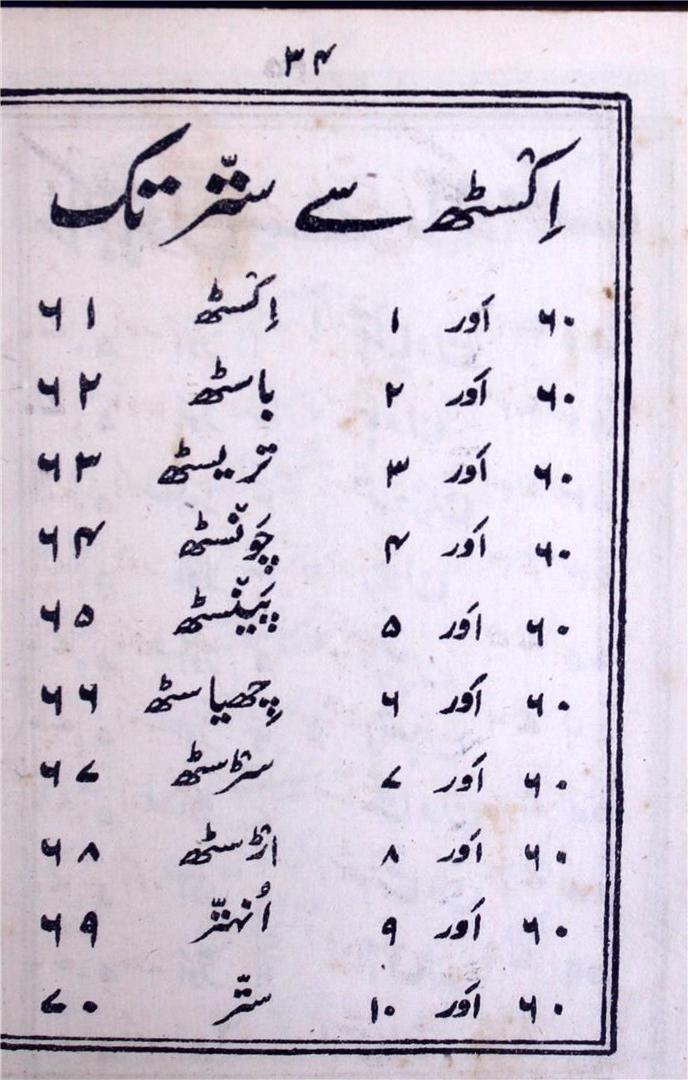 ۳۴
اِکسٹھ سے ستّر تک
۶۰ اَور ۱ اِکسٹھ ۶۱
۶۰ اَور ۲ باسٹھ ۶۲
۶۰ اَور ۳ تریسٹھ ۶۳
۶۰ اَور ۴ چَونسٹھ ۶۴
۶۰ اَور ۵ پَینسٹھ ۶۵
۶۰ اَور ۶ چھیاسٹھ ۶۶
۶۰ اَور ۷ سڑسٹھ ۶۷
۶۰ اَور ۸ اڑسٹھ ۶۸
۶۰ اَور ۹ اُنہتّر ۶۹
۶۰ اَور ۱۰ ستّر ۷۰